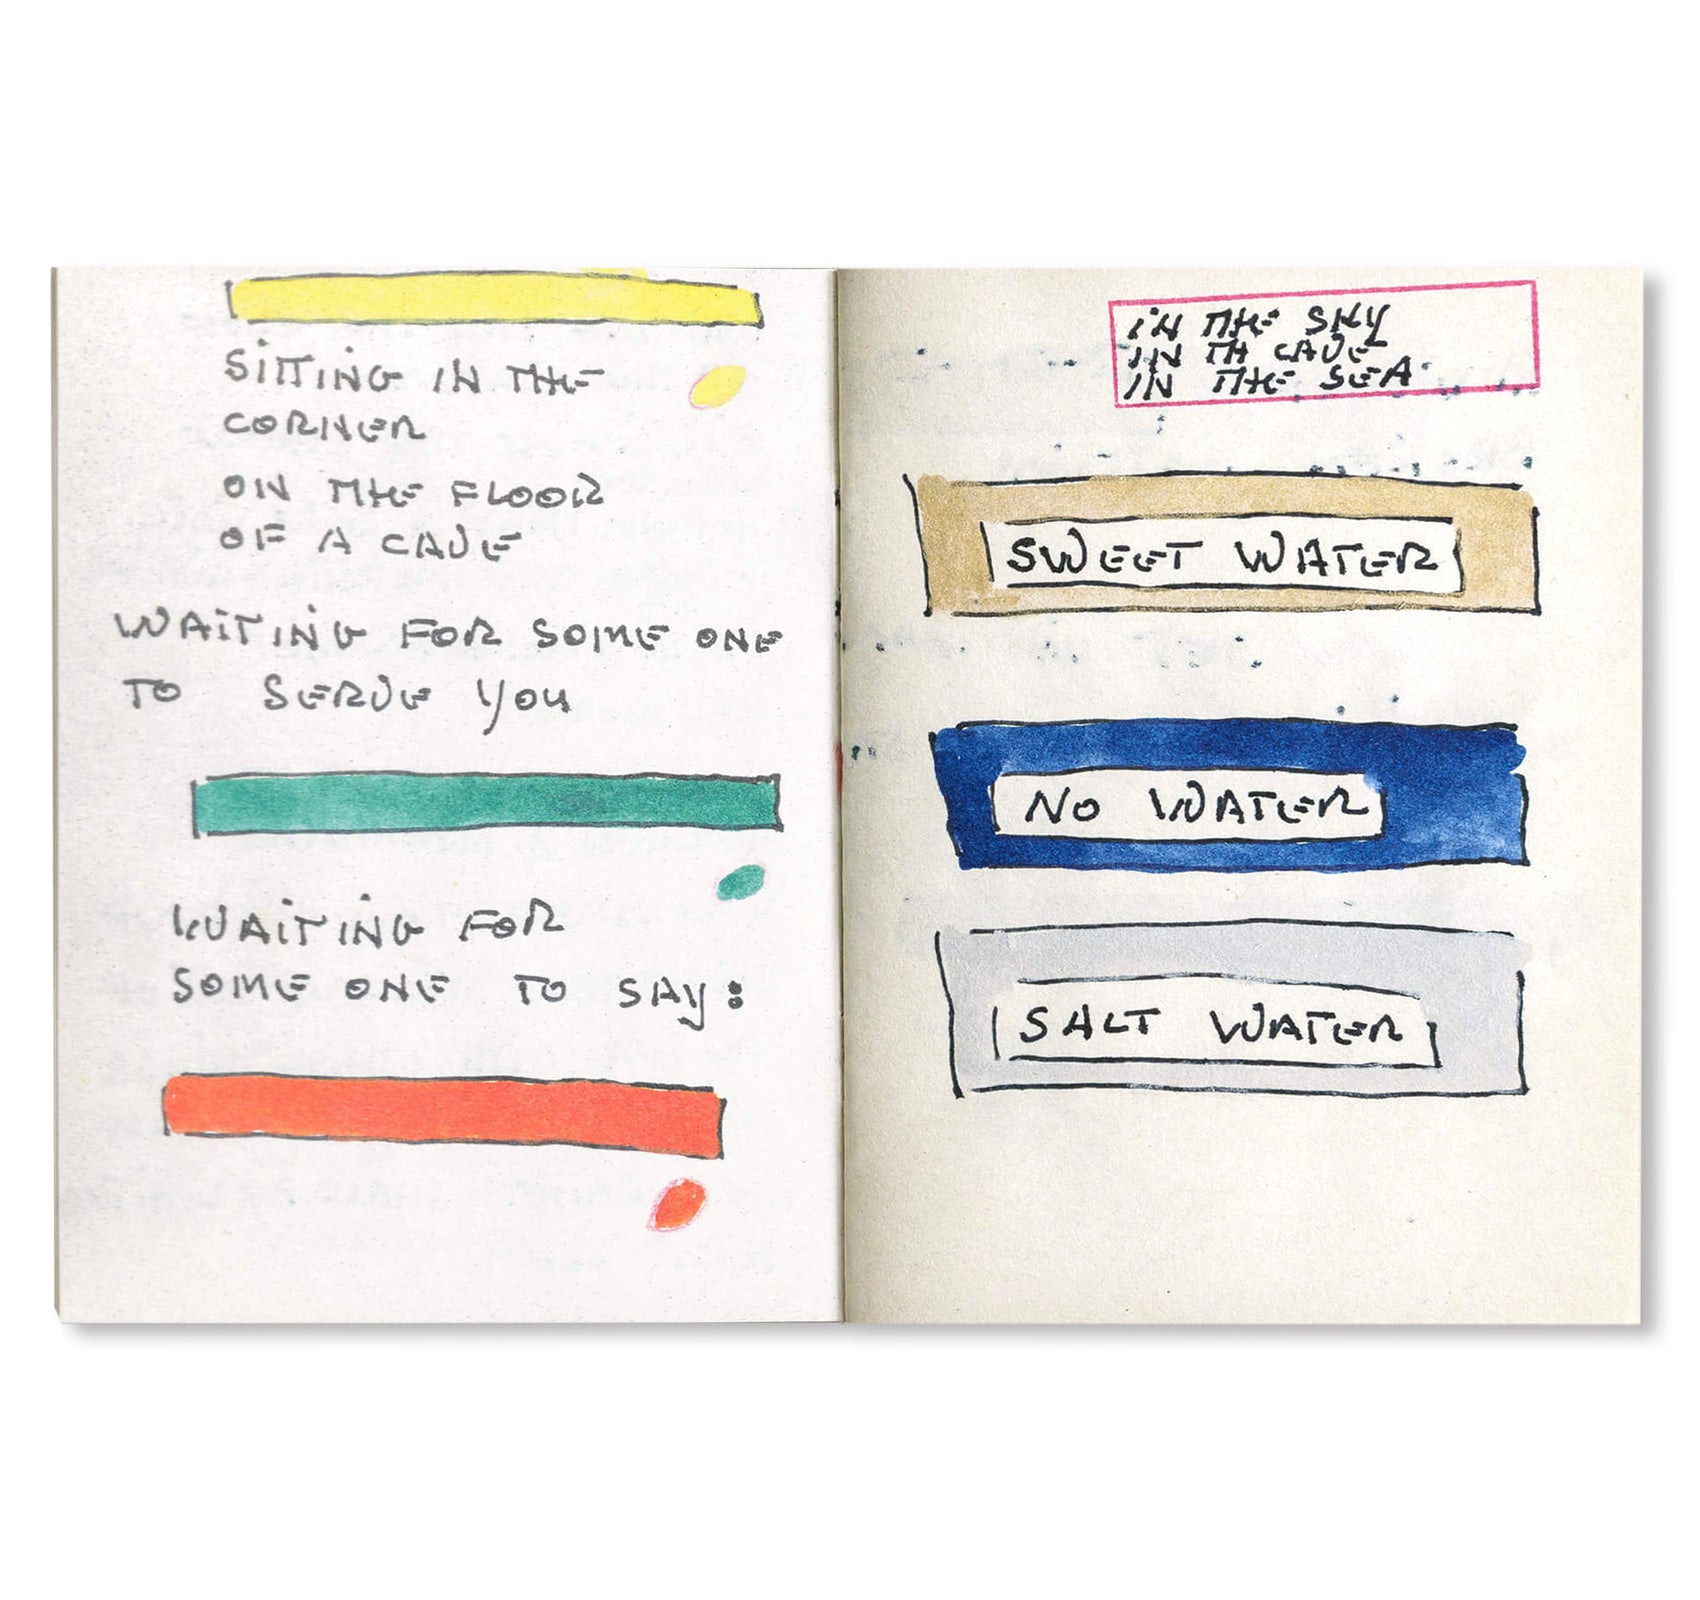 SITTING IN THE
CORNER
ON THE FLOOR
OF A CAVE
WAITING FOR SOME ONE
TO SERVE YOU
WAITING FOR
SOME ONE TO SAY:
IN THE SKY
IN TH CAVE
IN THE SEA
SWEET WATER
NO WATER
SALT WATER